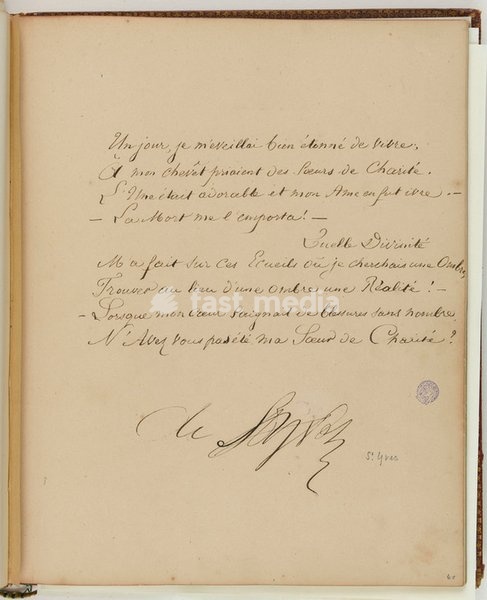 Un jour, je m'eveillai bien étonné de vivre;
À mon chevêt priaient des Sœurs de Charité.
L'Une était adorable et mon Ame en fut ivre. –
– La Mort me l'emporta! –
Quelle Divinité
M'a fait sur ces Ecueils où je cherchais une Ombre,
Trouver au lieu d'une ombre une Réalité! –
– Lorsque mon cœur saignait de blessures sans nombre
N'Avez vous pas été ma Sœur de Charité?
de
St Yves
fast media